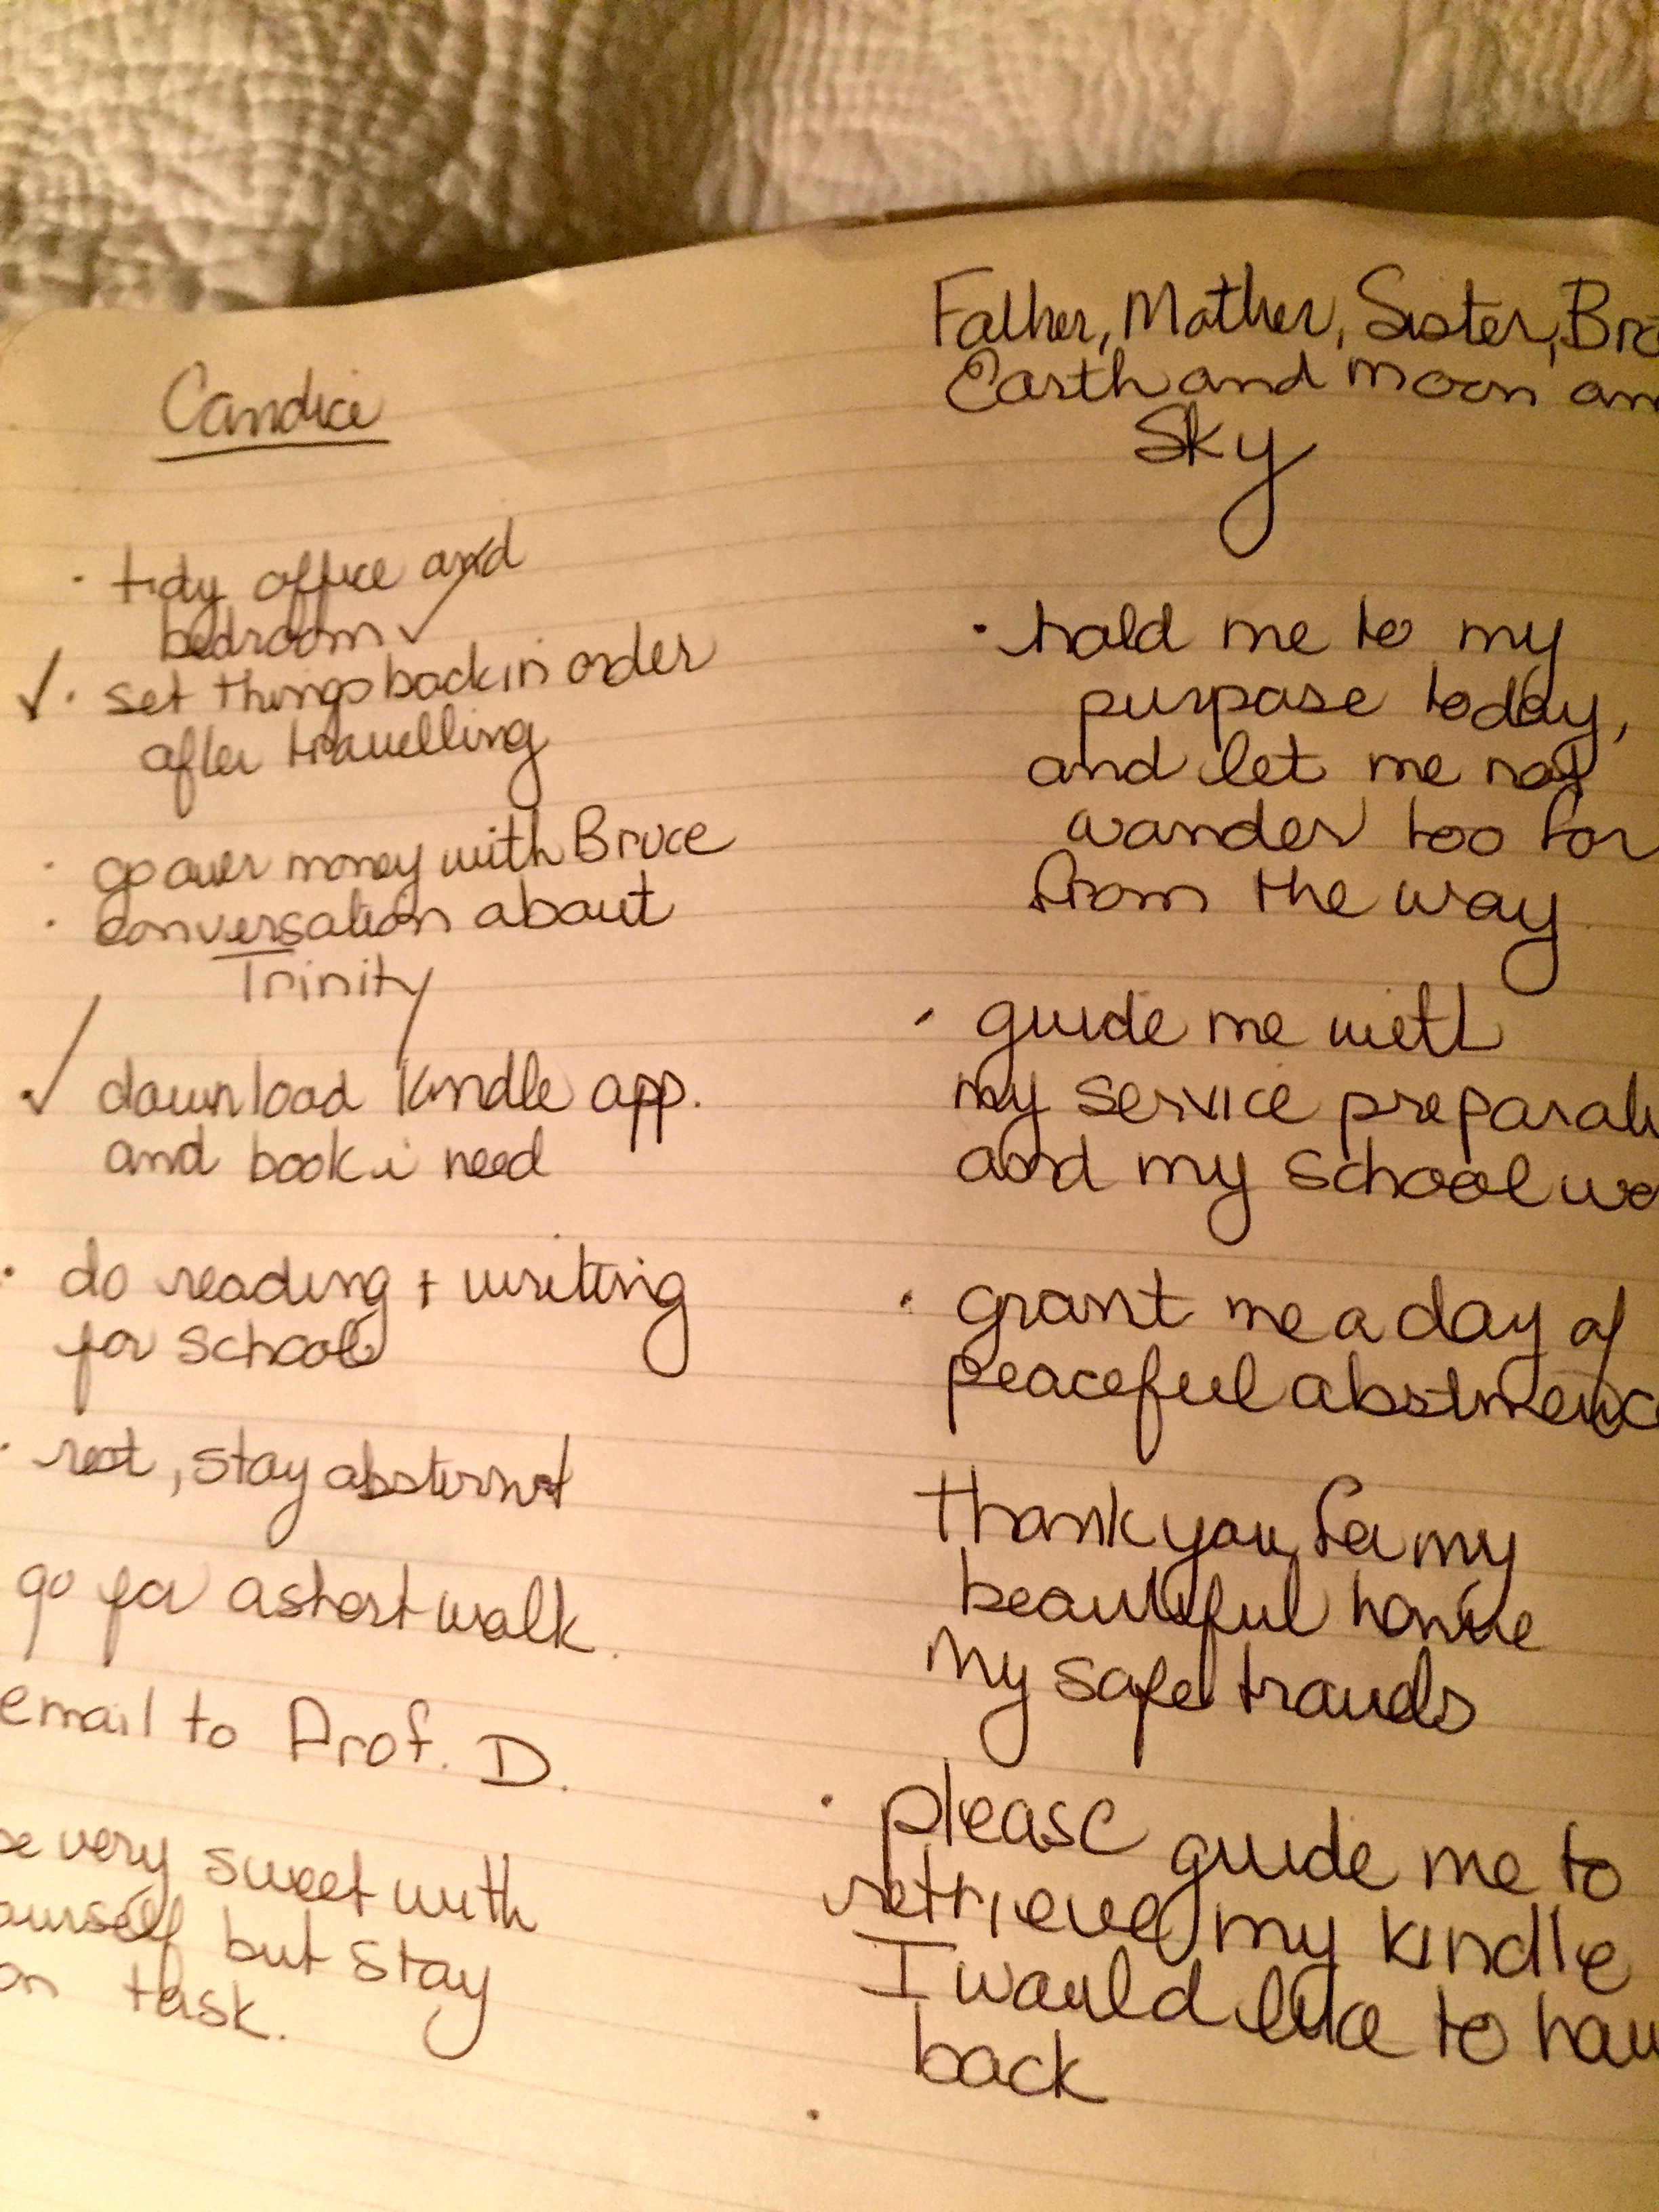 Candice
· tidy office and
bedroom ✓
✓· set things back in order
after travelling
· go over money with Bruce
· conversation about
Trinity
✓· download kindle app.
and book i need
· do reading + writing
for school
· rest, stay abstinent
go for a short walk.
email to Prof. D.
be very sweet with
ourself but stay
on task.
Father, Mother, Sister, Bro
Earth and moon an
Sky
· hold me to my
purpose today,
and let me not
wander too far
from the way
· guide me with
my service preparati
and my school wo
· grant me a day of
peaceful abstinenc
thank you for my
beautiful home
my safe travels
· please guide me to
retrieve my kindle
I would like to hav
back
·